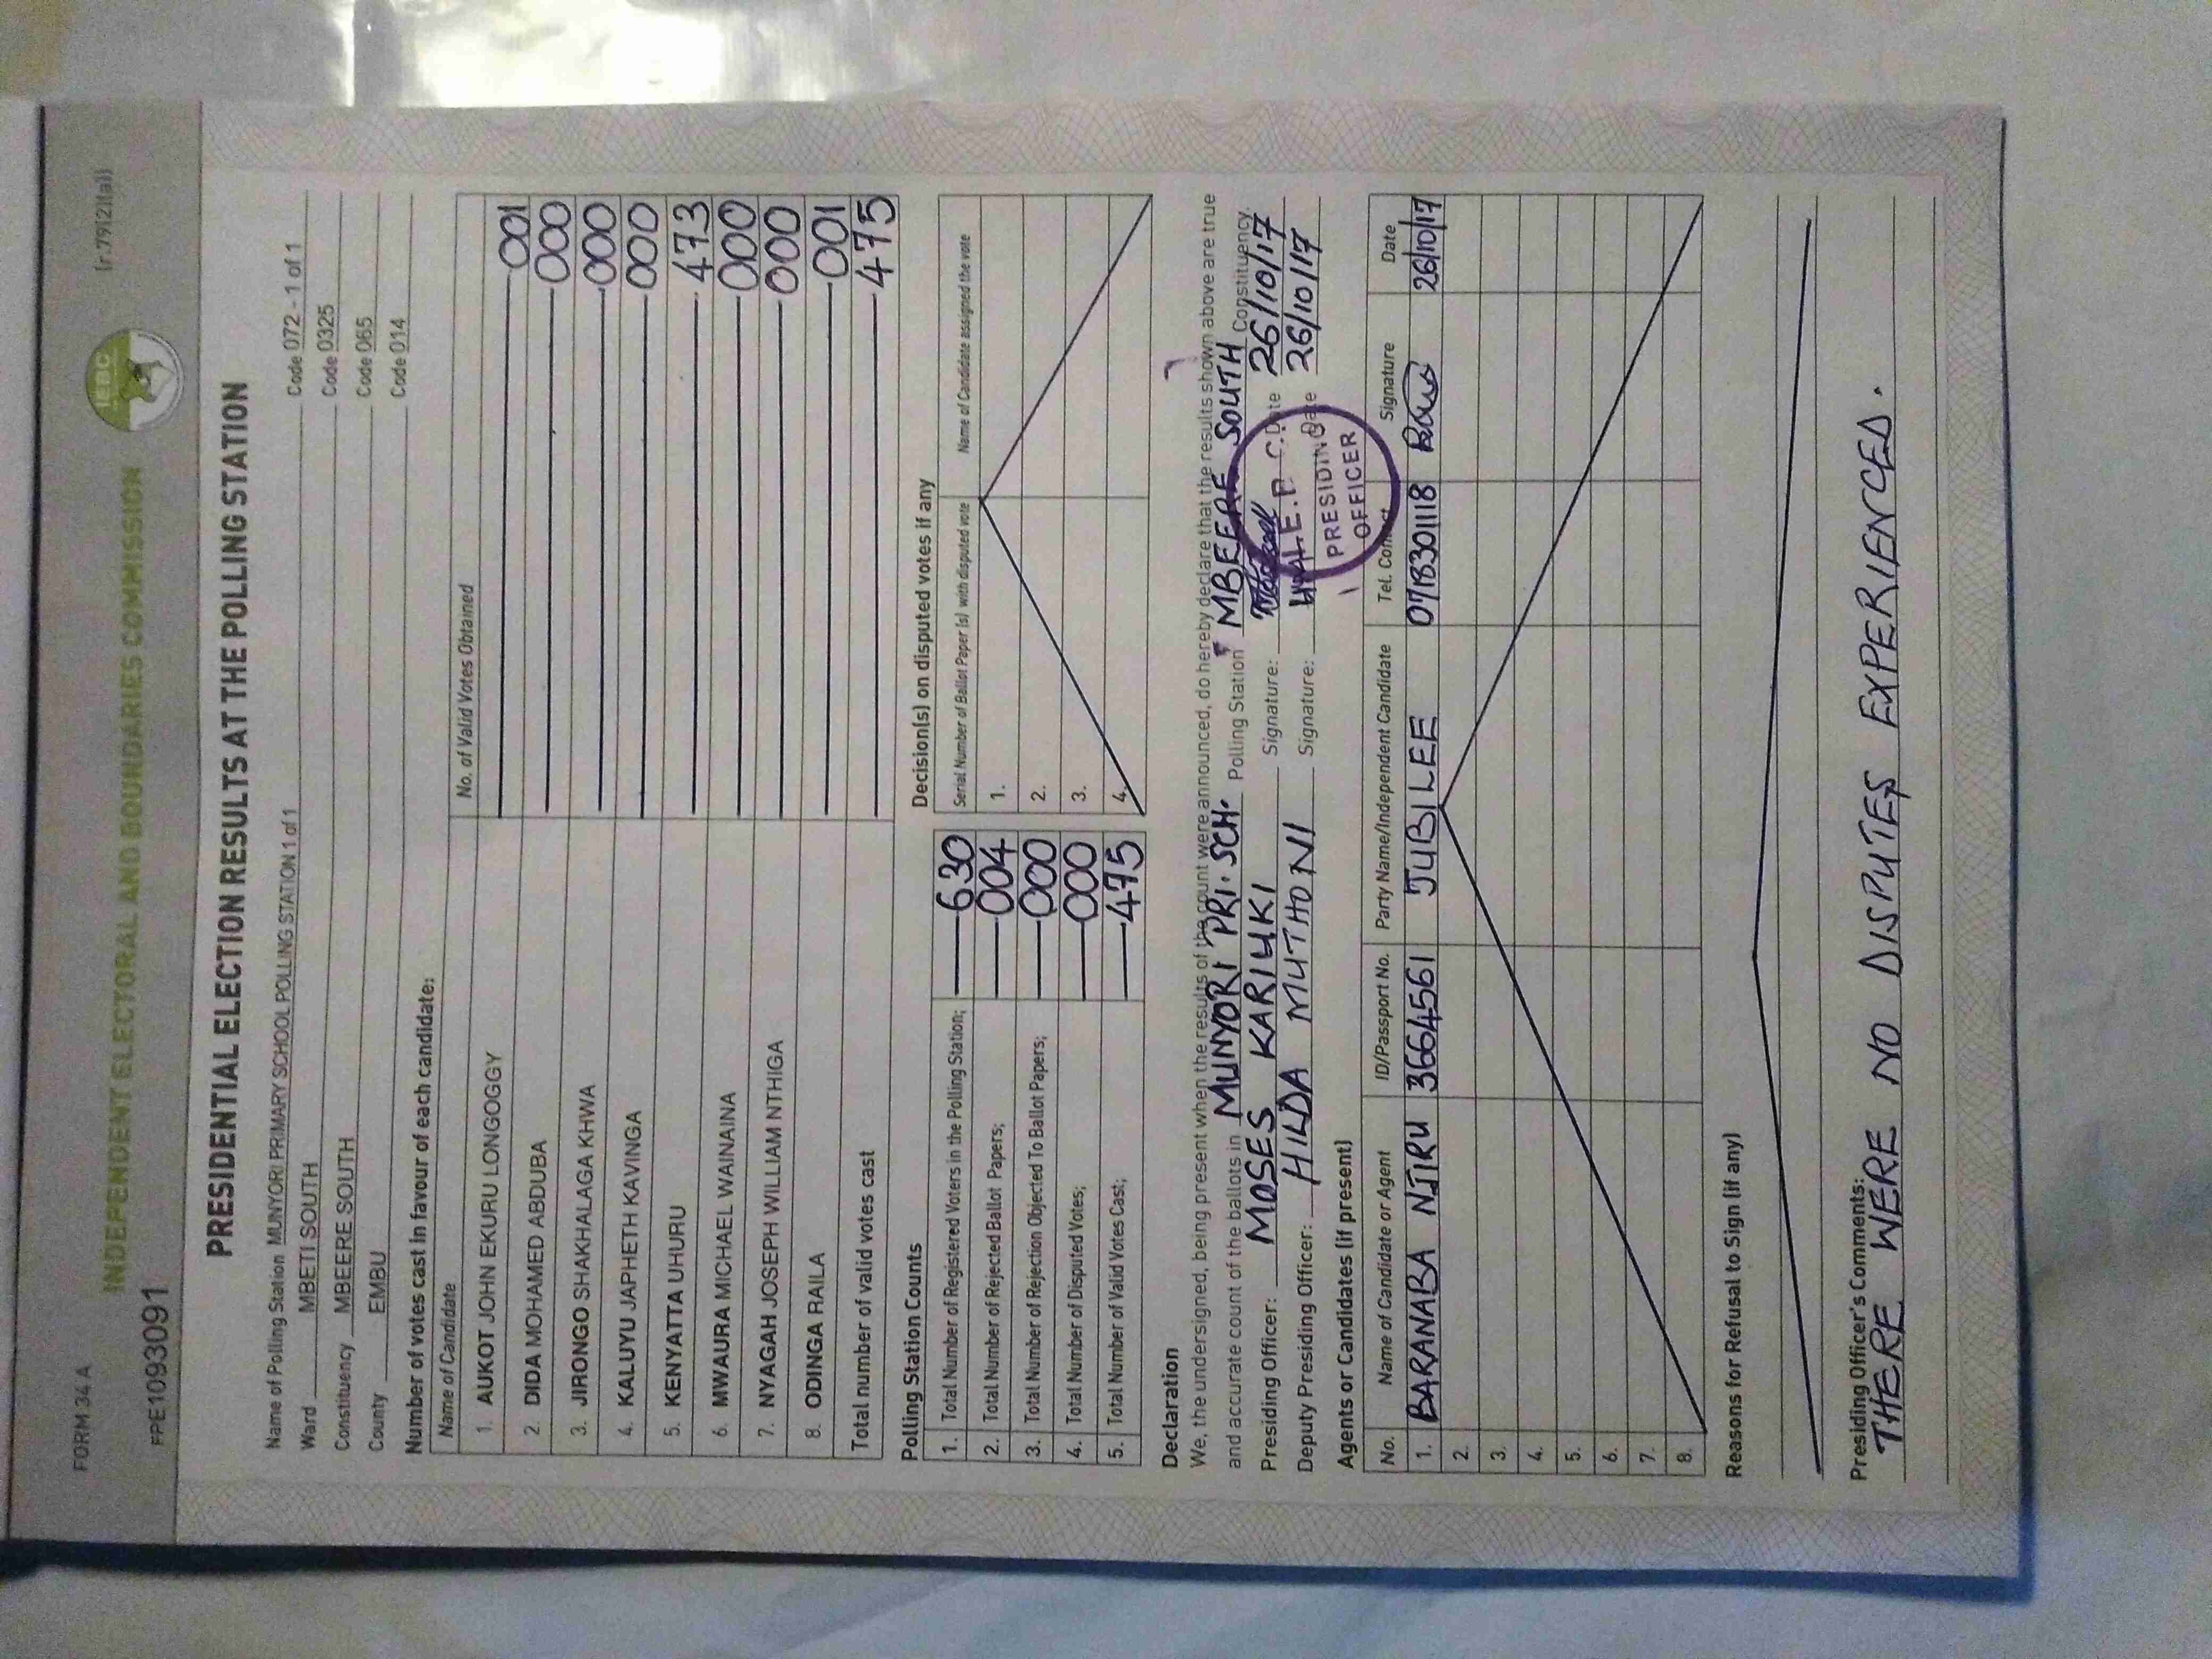 FORM 34 A
(r.79(2)(a))
IEBC
INDEPENDENT ELECTORAL AND BOUNDARIES COMMISSION
PPE1093091
PRESIDENTIAL ELECTION RESULTS AT THE POLLING STATION
Name of Polling Station MUNYORI PRIMARY SCHOOL POLLING STATION 1 of 1 Code 072 - 1 of 1
Ward MBETI SOUTH Code 0325
Constituency MBEERE SOUTH Code 065
County EMBU Code 014
Number of votes cast in favour of each candidate:
Name of Candidate No. of Valid Votes Obtained
1. AUKOT JOHN EKURU LONGOGGY 001
2 DIDA MOHAMED ABDUBA 000
3. JIRONGO SHAKHALAGA KHWA 000
4. KALUYU JAPHETH KAVINGA 000
5. KENYATTA UHURU 473
6. MWAURA MICHAEL WAINAINA 000
7. NYAGAH JOSEPH WILLIAM NTHIGA 000
8. ODINGA RAILA 001
Total number of valid votes cast 475
Polling Station Counts
1. Total Number of Registered Voters in the Polling Station; 630
2. Total Number of Rejected Ballot Papers; 004
3. Total Number of Rejection Objected To Ballot Papers; 000
4. Total Number of Disputed Votes; 000
5. Total Number of Valid Votes Cast; 475
Decision(s) on disputed votes if any
Serial Number of Ballot Paper (s) with disputed vote Name of Candidate assigned the vote
1.
2.
3.
4.
Declaration
We, the undersigned, being present when the results of the count were announced, do hereby declare that the results shown above are true
and accurate count of the ballots in MUNYORI PRI. SCH. Polling Station MBEERE SOUTH Constituency.
Presiding Officer: MOSES KARIUKI Signature: Date 26/10/17
Deputy Presiding Officer: HILDA MUTHONI Signature: Date 26/10/17
PRESIDING
OFFICER
Agents or Candidates (if present)
No. Name of Candidate or Agent ID/Passport No. Party Name/Independent Candidate Tel. Contact Signature Date
1. BARANABA NJIRU 3664561 JUBILEE 0718301118 26/10/17
2.
3.
4.
5.
6.
7.
8.
Reasons for Refusal to Sign (if any)
Presiding Officer's Comments:
THERE WERE NO DISPUTES EXPERIENCED.